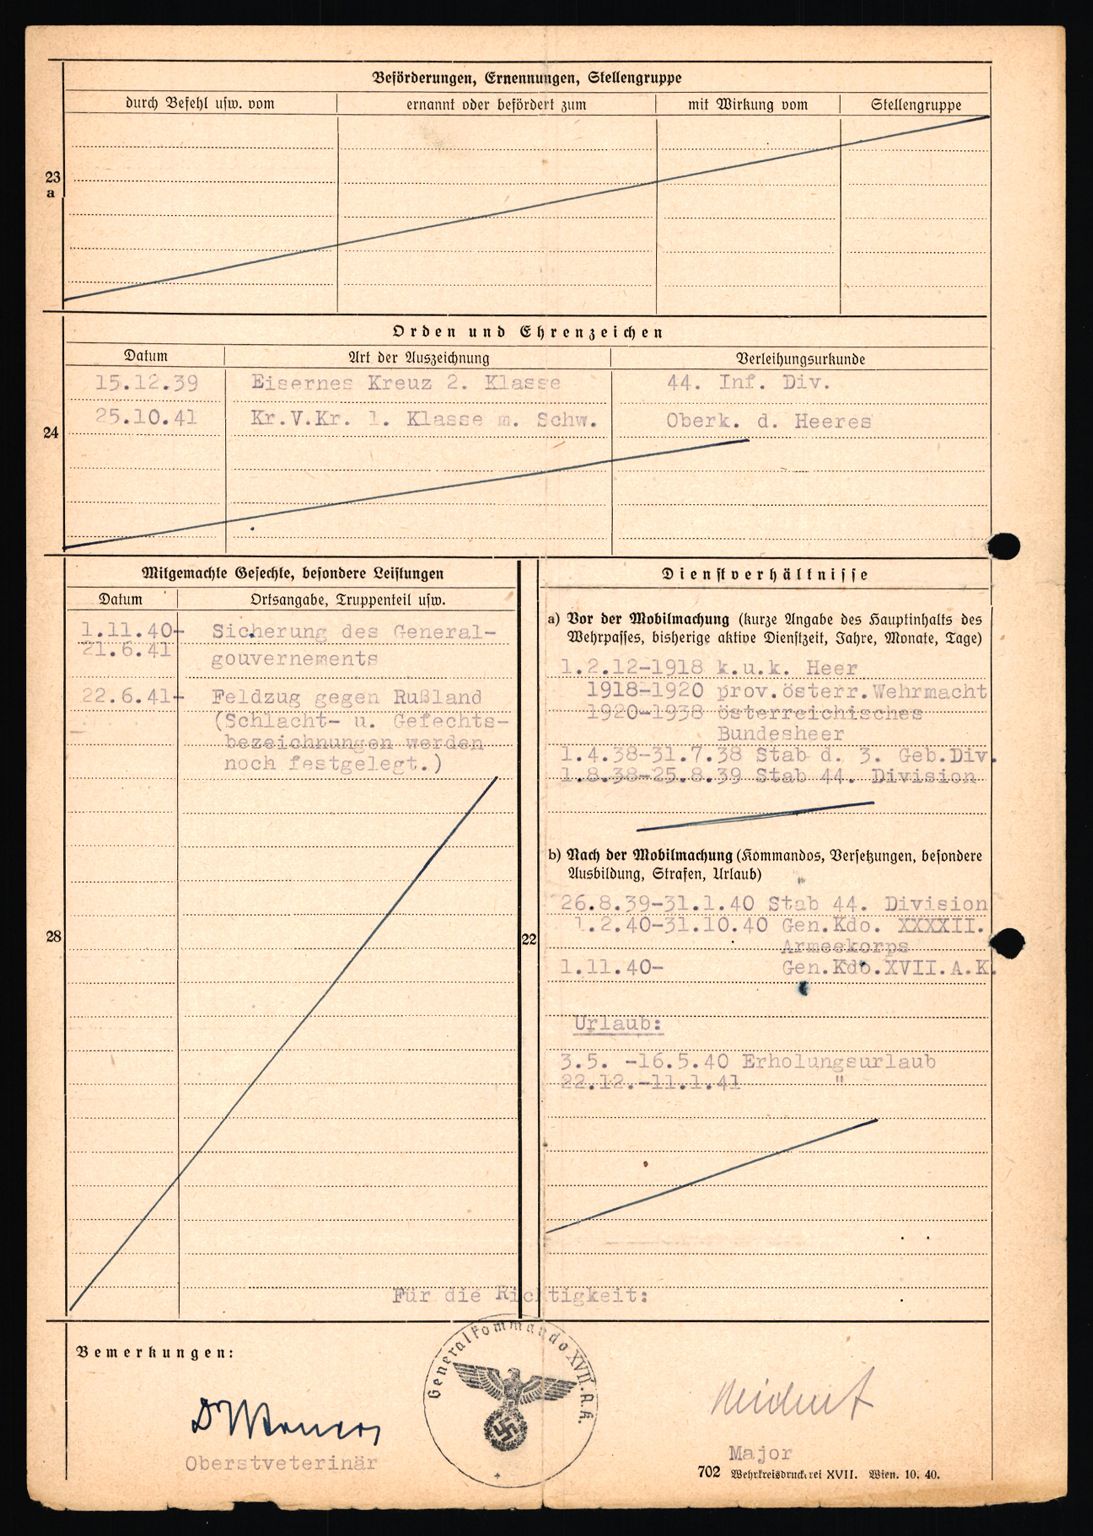 Beförderungen, Ernennungen, Stellengruppe
durch Befehl usw. vom ernannt oder befördert zum mit Wirkung vom Stellengruppe
23
a
Orden und Ehrenzeichen
Datum Art der Auszeichnung Verleihungsurkunde
15.12.39 Eisernes Kreuz 2. Klasse 44. Inf. Div.
25.10.41 Kr.V.Kr. 1. Klasse m. Schw. Oberk. d. Heeres
24
Mitgemachte Gefechte, besondere Leistungen
Datum Ortsangabe, Truppenteil usw.
1.11.40- Sicherung des General-
21.6.41 gouvernements
22.6.41- Feldzug gegen Rußland
(Schlacht- u. Gefechts-
bezeichnungen werden
noch festgelegt.)
28
Dienstverhältnisse
a) Vor der Mobilmachung (kurze Angabe des Hauptinhalts des
Wehrpasses, bisherige aktive Dienstzeit, Jahre, Monate, Tage)
1.2.12-1918 k.u.k. Heer
1918-1920 prov.österr.Wehrmacht
1920-1938 österreichisches
Bundesheer
1.4.38-31.7.38 Stab d. 3. Geb.Div.
1.8.38-25.8.39 Stab 44. Division
b) Nach der Mobilmachung (Kommandos, Versetzungen, besondere
Ausbildung, Strafen, Urlaub)
26.8.39-31.1.40 Stab 44. Division
1.2.40-31.10.40 Gen.Kdo. XXXXII.
Armeekorps
22
1.11.40- Gen.Kdo.XVII.A.K.
Urlaub:
3.5. -16.5.40 Erholungsurlaub
22.12.-11.1.41 "
Für die Richtigkeit:
Bemerkungen:
Generalkommando XVII. A.K.
Oberstveterinär
Major
702 Wehrkreisdruckerei XVII. Wien. 10. 40.